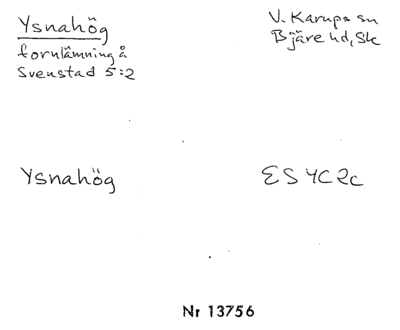 Ysnahög
fornlämning å
Svenstad 5:2
V. Karups sn
Bjäre hd, Sk
Ysnahög
ES 4C2c
Nr 13756